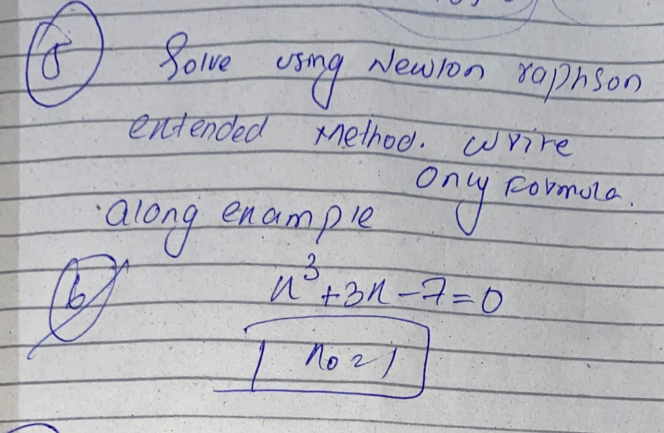 5 Solve using Newton raphson
extended method. write
only formula.
along example
6 x³+3x-7=0
x0=1